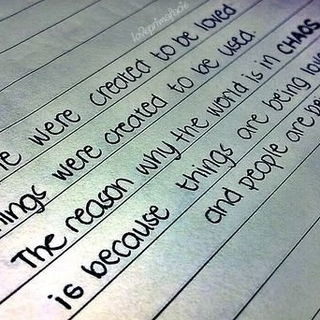 were created to be loved
were created to be used.
The reason why the world is in CHAOS
is because things are being
and people are